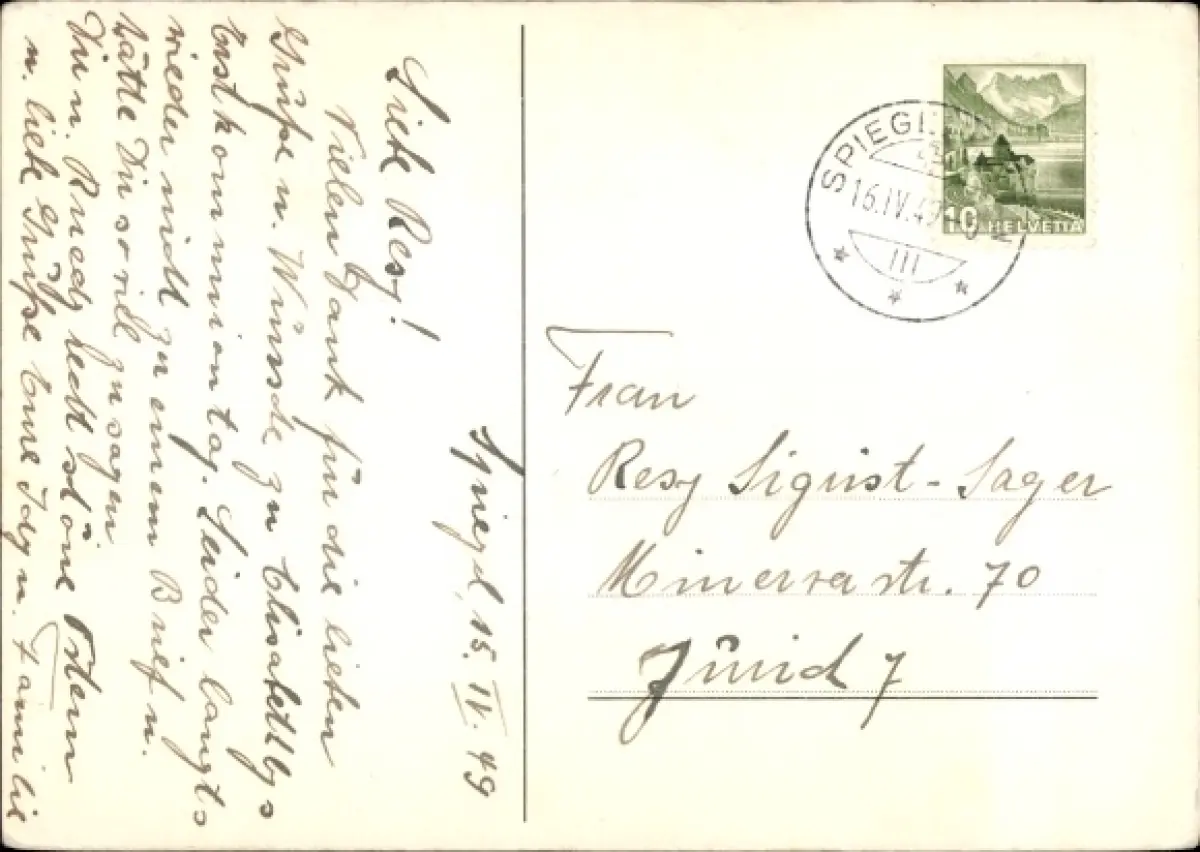 Spiegel, 15. IV. 49
Liebe Resy!
Vielen Dank für die lieben
Grüsse u. Wünsche zu Elisabethlys
Erstkommuniontag. Leider langts
wieder nicht zu einem Brief u.
hätte Dir soviel zu sagen
Dir u. Ruedy recht schöne Ostern
u. liebe Grüsse Eure Idy u. Familie
SPIEGEL
16.IV.49
III
10 HELVETIA
Frau
Resy Sigrist-Sager
Minervastr. 70
Zürich 7